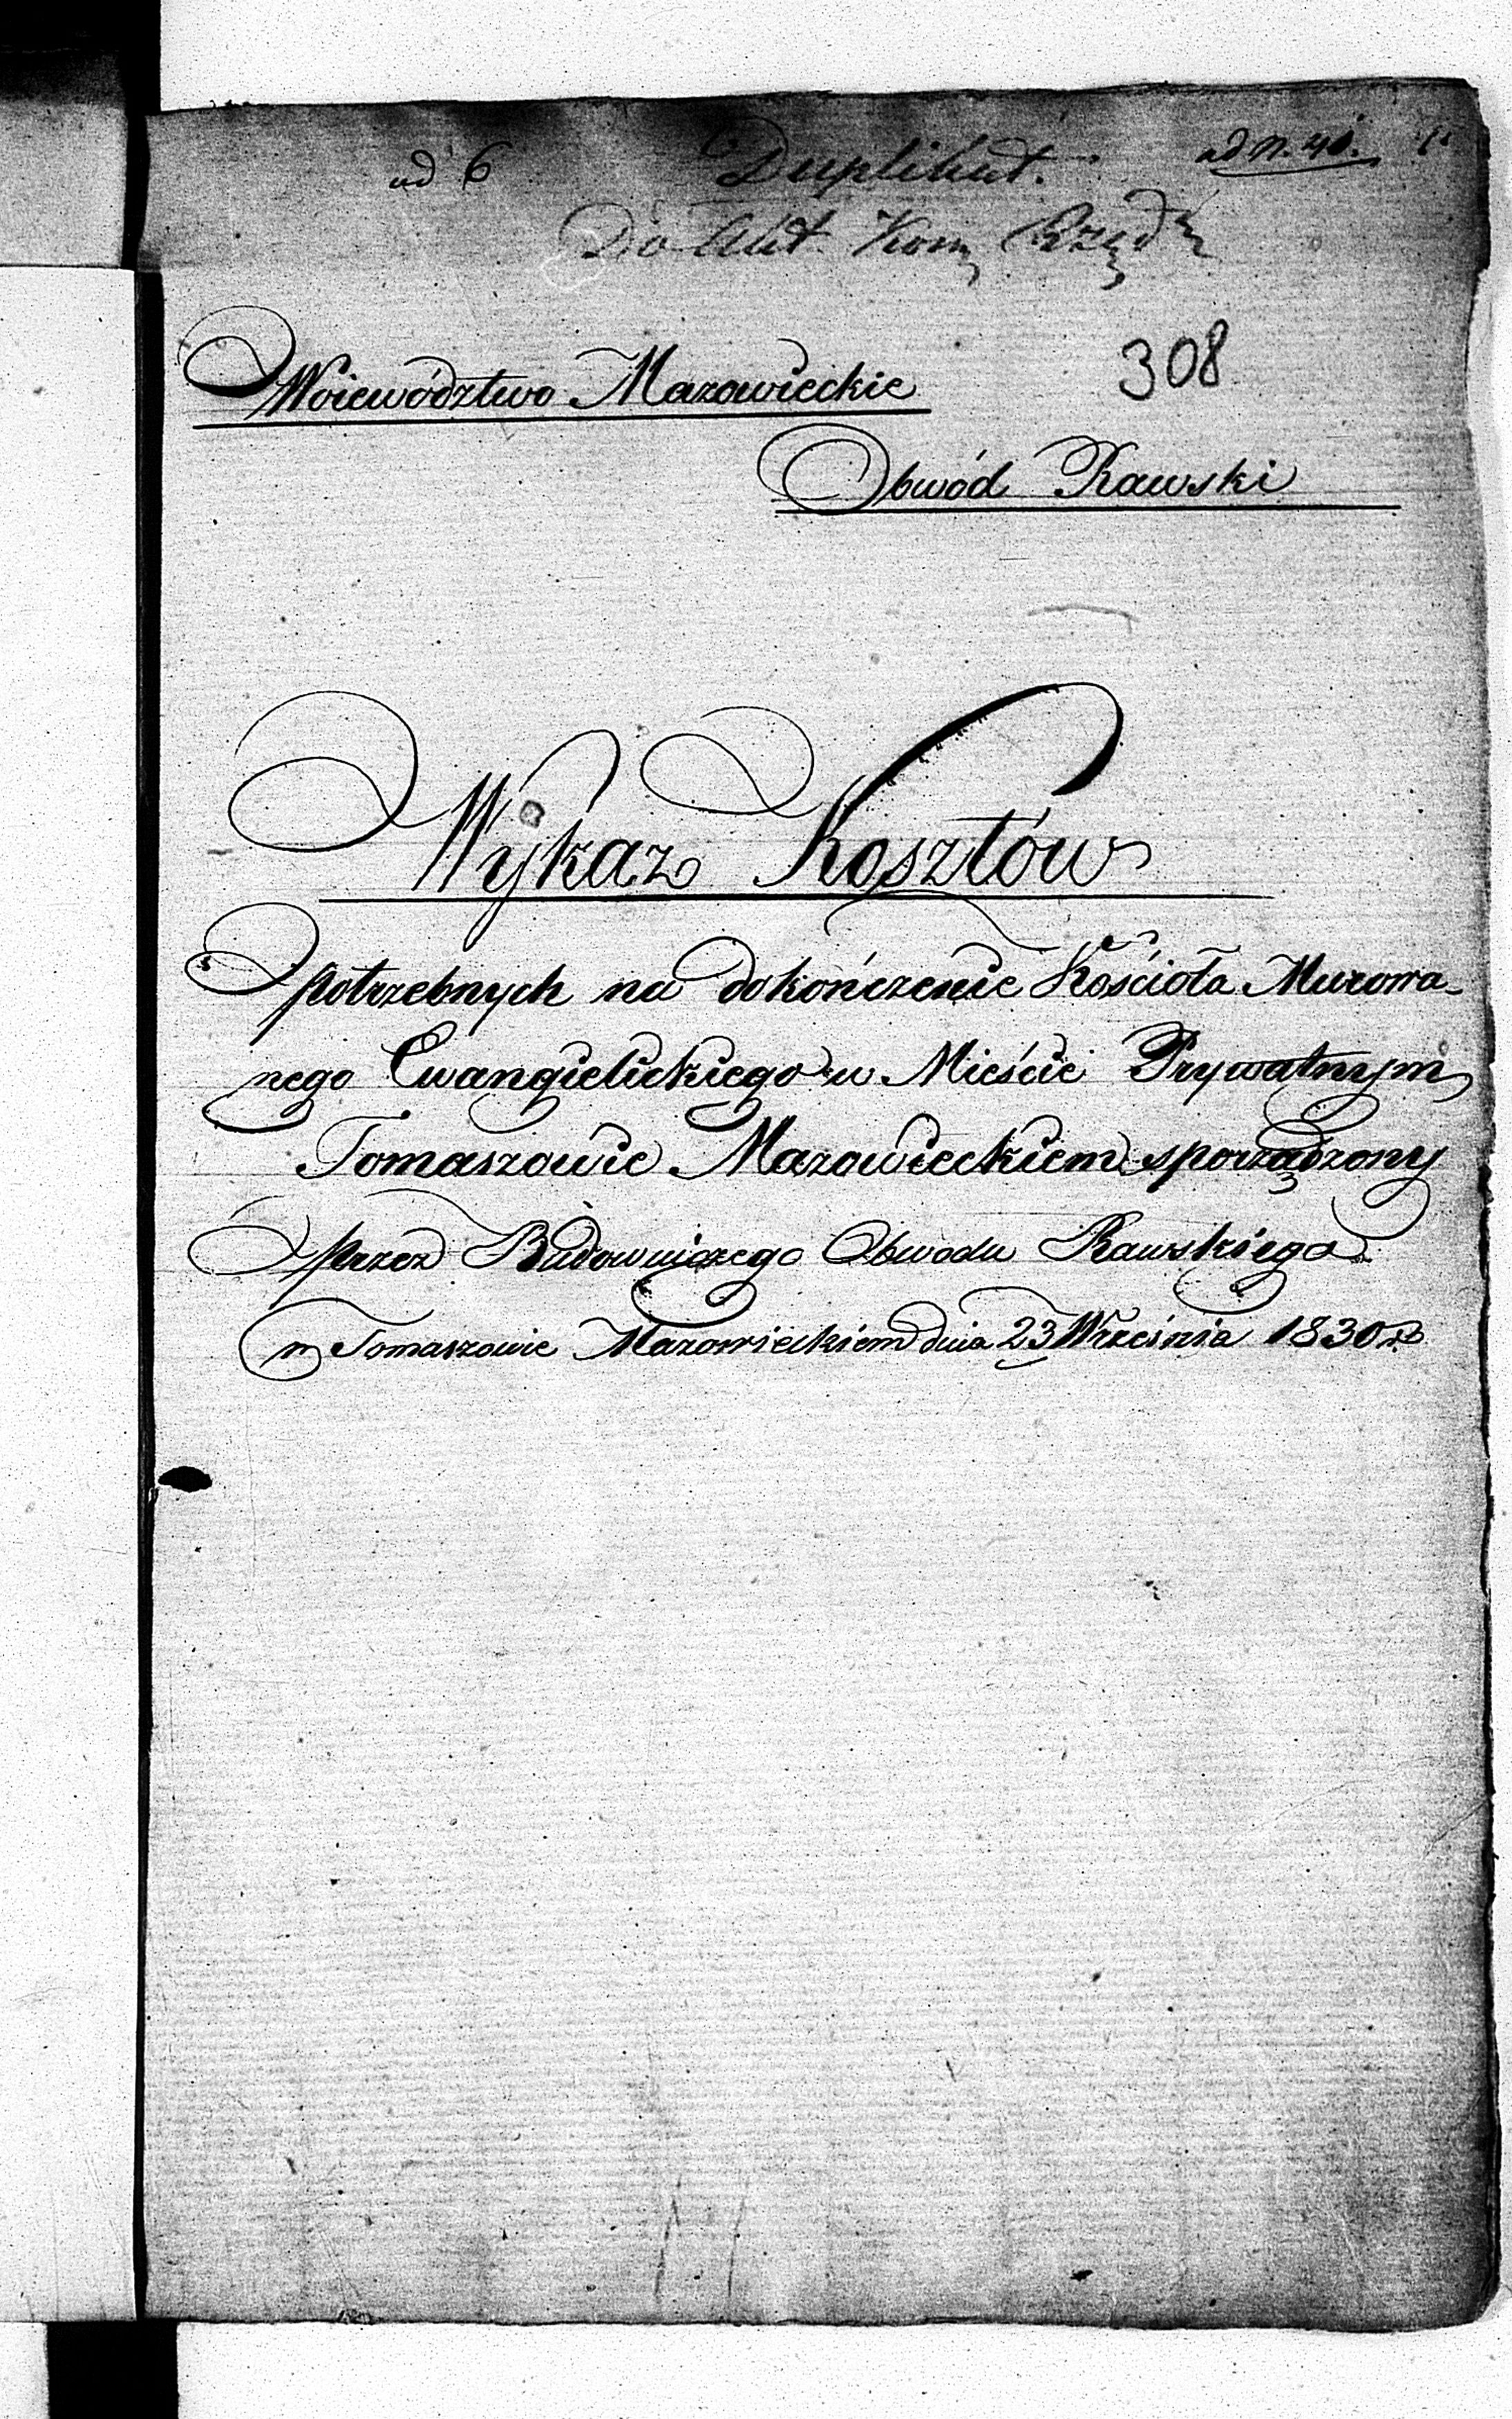 ad 6 Duplikat. ad N. 41.
Do Akt Kom Rząd
308
Woiewództwo Mazowieckie
Obwód Rawski
Wykaz Kosztów
potrzebnych na dokończenie Kościoła Murowa-
nego Ewangielickiego w Mieście Prywatnym
Tomaszowie Mazowieckiem sporządzony
przez Budowniczego Obwodu Rawskiego
w Tomaszowie Mazowieckiem dnia 23 Września 1830 r.